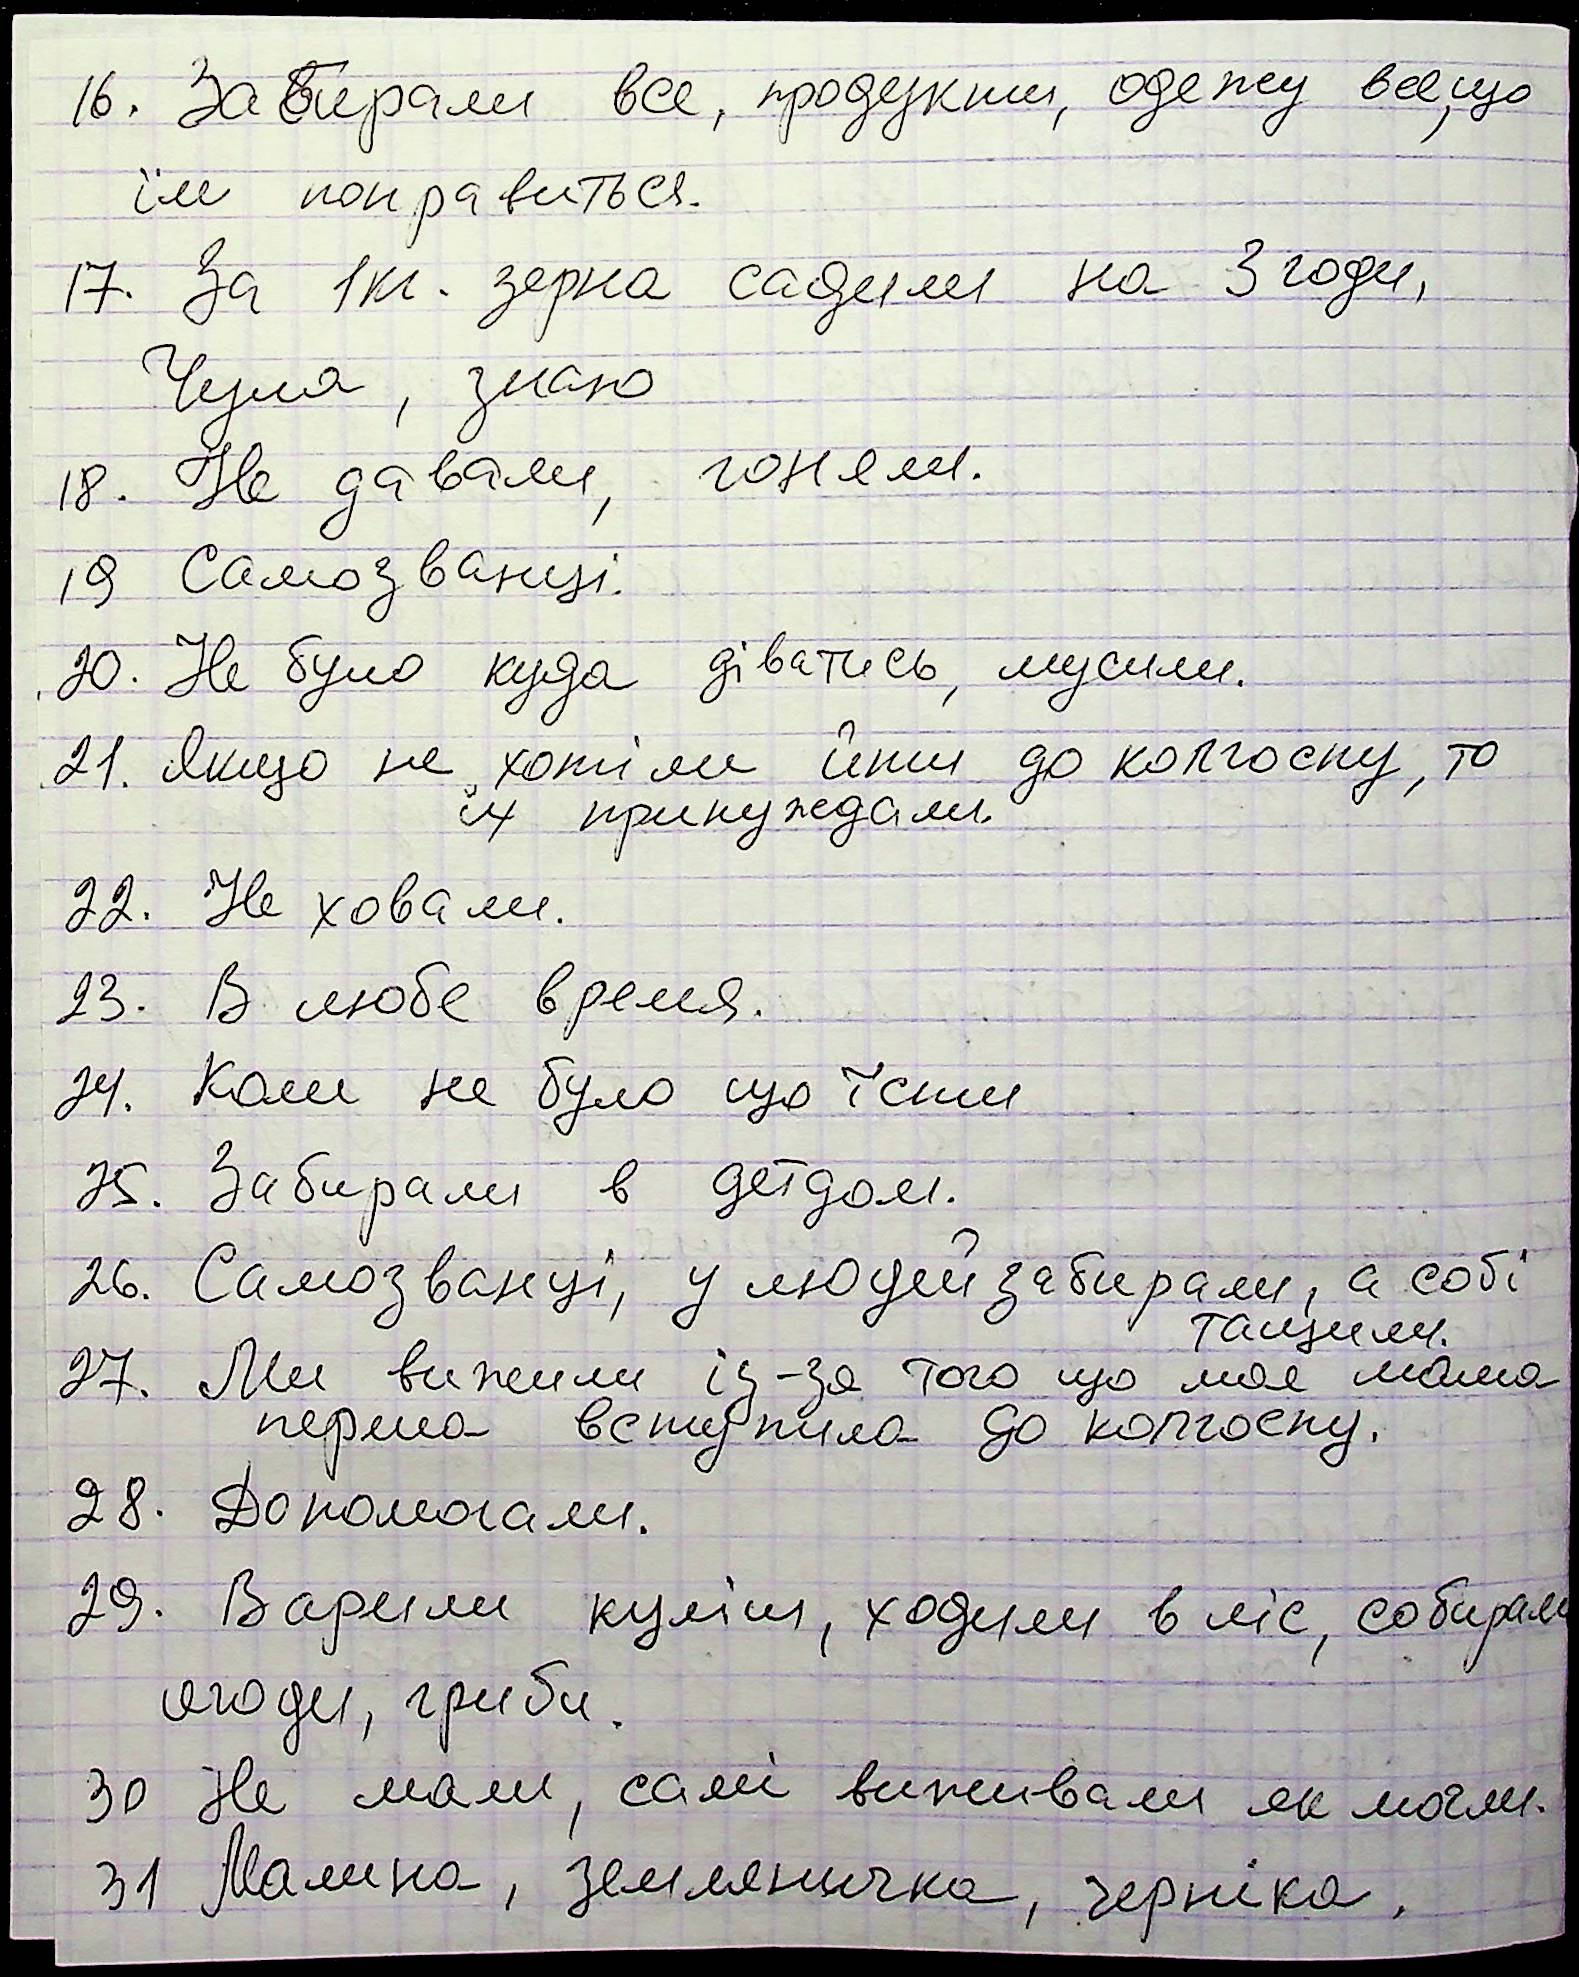 16. Забирали все, продукти, одежу все, що
їм понравиться.
17. За 1кг. зерна садили на 3 годи,
Чула, знаю
18. Не давали, гоняли.
19 Самозванці.
20. Не було куда діватись, мусили.
21. Якщо не хотіли йти до колгоспу, то
їх принуждали.
22. Не ховали.
23. В любе время.
24. Коли не було що їсти
25. Забирали в детдом.
26. Самозванці, у людей забирали, а собі
тащили.
27. Ми вижили із-за того що моя мама
перша вступила до колгоспу.
28. Допомогали.
29. Варили куліш, ходили в ліс, собирали
ягоди, гриби.
30 Не мали, самі виживали як могли.
31 Малина, земляничка, черніка.